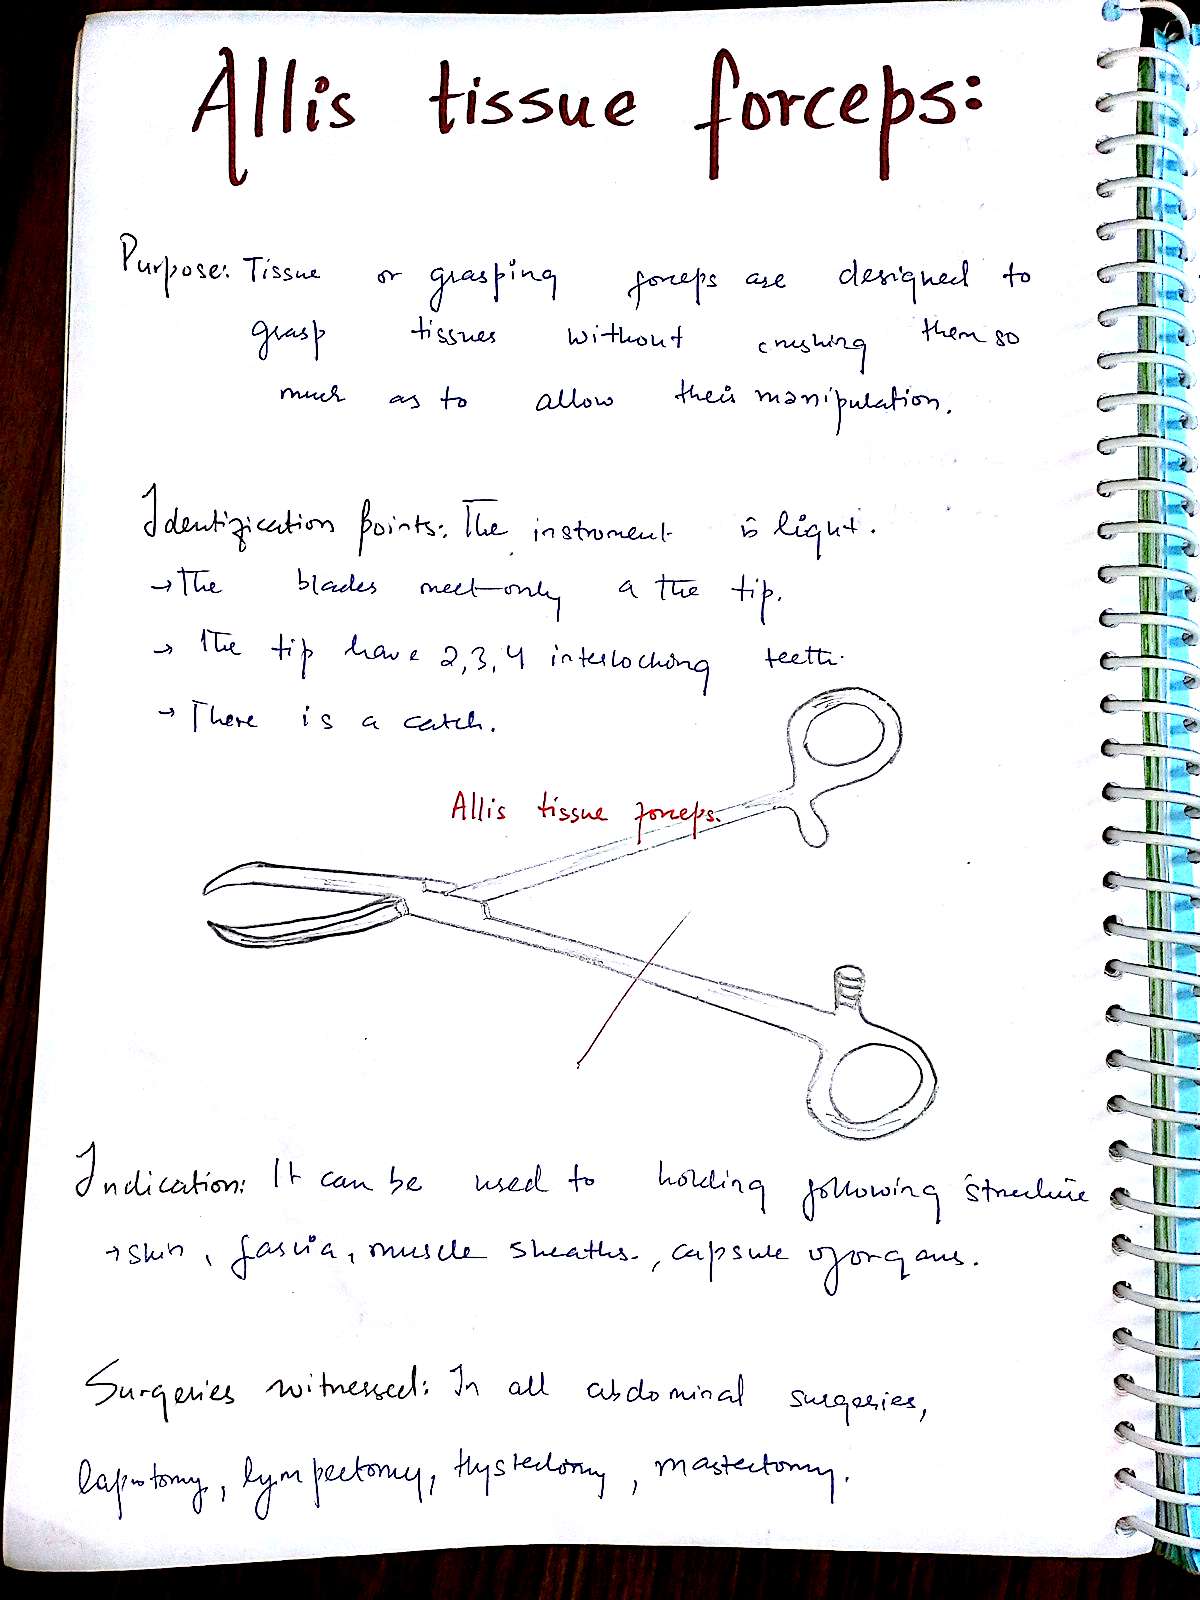 Allis tissue forceps:
Purpose: Tissue or grasping forceps are designed to
grasp tissues without crushing them so
much as to allow their manipulation.
Identification points: The instrument is light.
→ The blades meet only a the tip.
→ The tip have 2,3,4 interlocking teeth.
→ There is a catch.
Allis tissue forceps.
Indication: It can be used to holding following structure
→ skin, fascia, muscle sheaths, capsule of organs.
Surgeries witnessed: In all abdominal surgeries,
lapotomy, lympectomy, Hystectomy, mastectomy.